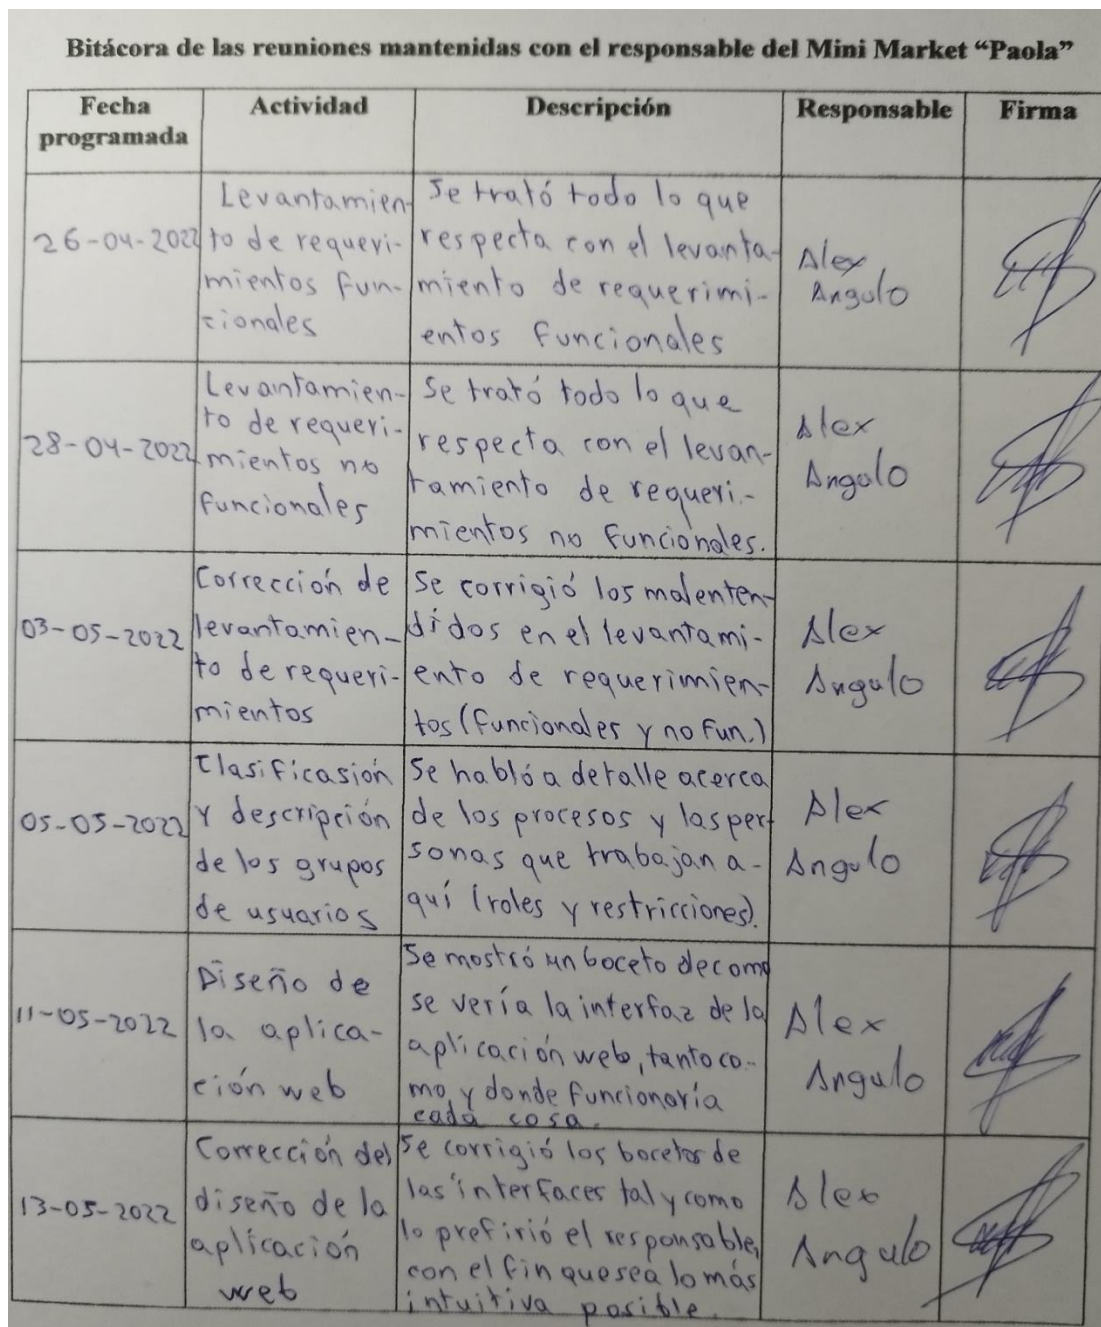 Bitácora de las reuniones mantenidas con el responsable del Mini Market “Paola”
Fecha
programada
Actividad
Descripción
Responsable
Firma
26-04-2022
Levantamien-
to de requeri-
mientos fun-
cionales
Se trató todo lo que
respecta con el levanta-
miento de requerimi-
entos funcionales
Alex
Angulo
28-04-2022
Levantamien-
to de requeri-
mientos no
funcionales
Se trató todo lo que
respecta con el levan-
tamiento de requeri-
mientos no funcionales.
Alex
Angulo
03-05-2022
Corrección de
levantamien-
to de requeri-
mientos
Se corrigió los malenten-
didos en el levantami-
ento de requerimien-
tos (funcionales y no fun.)
Alex
Angulo
05-05-2022
Clasificasión
y descripción
de los grupos
de usuarios
Se habló a detalle acerca
de los procesos y las per-
sonas que trabajan a-
quí (roles y restricciones).
Alex
Angulo
11-05-2022
Diseño de
la aplica-
ción web
Se mostró un boceto de como
se vería la interfaz de la
aplicación web, tanto co-
mo, y donde funcionaría
cada cosa.
Alex
Angulo
13-05-2022
Corrección del
diseño de la
aplicación
web
Se corrigió los bocetos de
las interfaces tal y como
lo prefirió el responsable,
con el fin que sea lo más
intuitiva posible.
Alex
Angulo